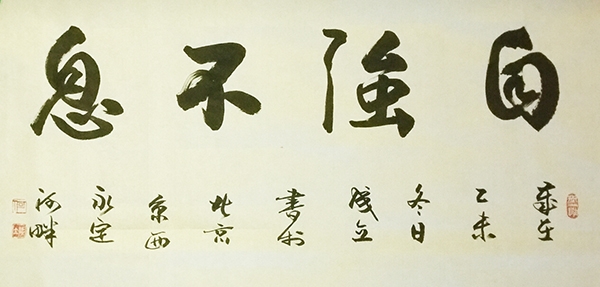 自強不息
歲在
乙未
冬日
成立
書於
北京
京西
永定
河畔